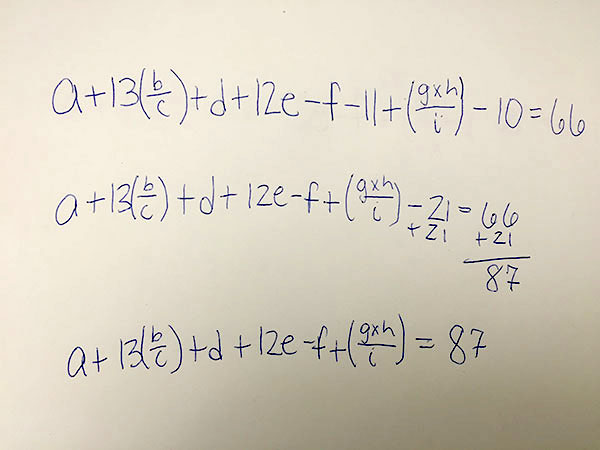 a+13(b/c)+d+12e-f-11+(gxh/i)-10=66
a+13(b/c)+d+12e-f+(gxh/i)-21=66
+21 +21
87
a+13(b/c)+d+12e-f+(gxh/i)=87